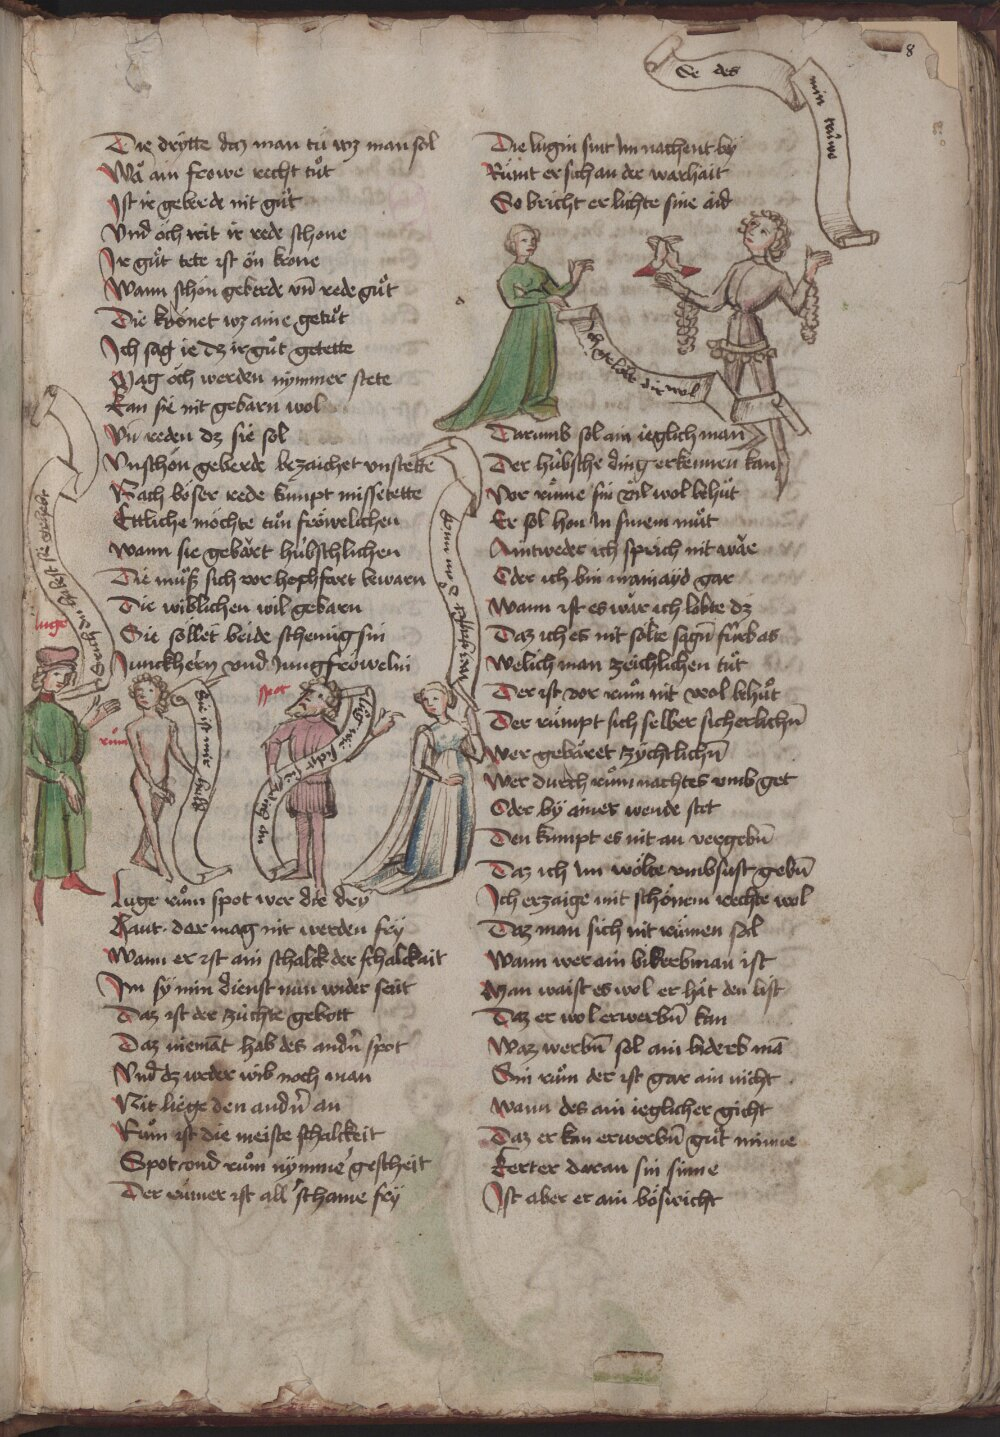 8
Se des
min trüwe
Die drytte daz man tü wz man sol
Wa ain frowe recht tůt
Ist ir geberde nit gůt
Vnd och nit ir rede schone
Ir gůt tete ist on krone
Wann schön geberde vn̄ rede gůt
Die krönet wz aine getůt
Ich sag ie dz ir gůt getette
Mag öch werden nymmer stete
Kan sie nit gebarn wol
Vn̄ reden dz sie sol
Vnschön geberde bezaichet vnstette
Nach böser rede kumpt missetette
Ettliche möchte tůn fröwelichen
Wann sie gebaret hübschlichen
Die můß sich vor hochfart bewarn
Die wiblichen wil gebarn
Sie söllet beide schemig sin
Junckhern vnd Jungfröwelin
luge
rům
Sie ist mir hold
spot
Luge rům spot wer die dry
Haut. dar mag nit werden fry
Wann er ist ain schalck der schalckait
Im sy min dienst nun wider seit
Daz ist der zuchte gebott
Daz niemat hab des andn̄ spot
Vnd dz weder wib noch man
Nit liege den andn̄ an
Rům ist die meiste schalckeit
Spot vnd rům nymme gescheit
Der rümer ist all schame fry
Die lugin sint im nachent by
Rümt er sich an der warhait
So bricht er lichte sine aid
Ich gelobe dir wol
Darumb sol ain ieglich man
Der hübsche ding erkennen kan
Vor rüme sin vil wol behůt
Er sol hon in sinem můt
Aintweder ich sprich nit war
Oder ich bin mainayd gar
Wann ist es war ich lobte dz
Daz ich es nit solte sagn̄ fürbas
Welich man zeichlichen tůt
Der ist vor rům nit wol behůt
Der rümpt sich selber sicherlichn̄
Wer gebaret zychtlichn̄
Wer durch rům nachtes vmb get
Oder by ainer wende stet
Den kumpt es nit an vergebn̄
Daz ich im wölte vmb sust gebn̄
Ich erzaige mit schönem rechte wol
Daz man sich nit rümen sol
Wann wer ain biderbman ist
Man waist es wol er hat den list
Daz er wol erwerbn̄ kan
Waz werbn̄ sol ain biderb mā
Sin rům der ist gar ain nicht
Wann des ain ieglicher gicht
Daz er kan erwerbn̄ gůt minne
Kert er daran sin sinne
Ist aber er ain böswicht